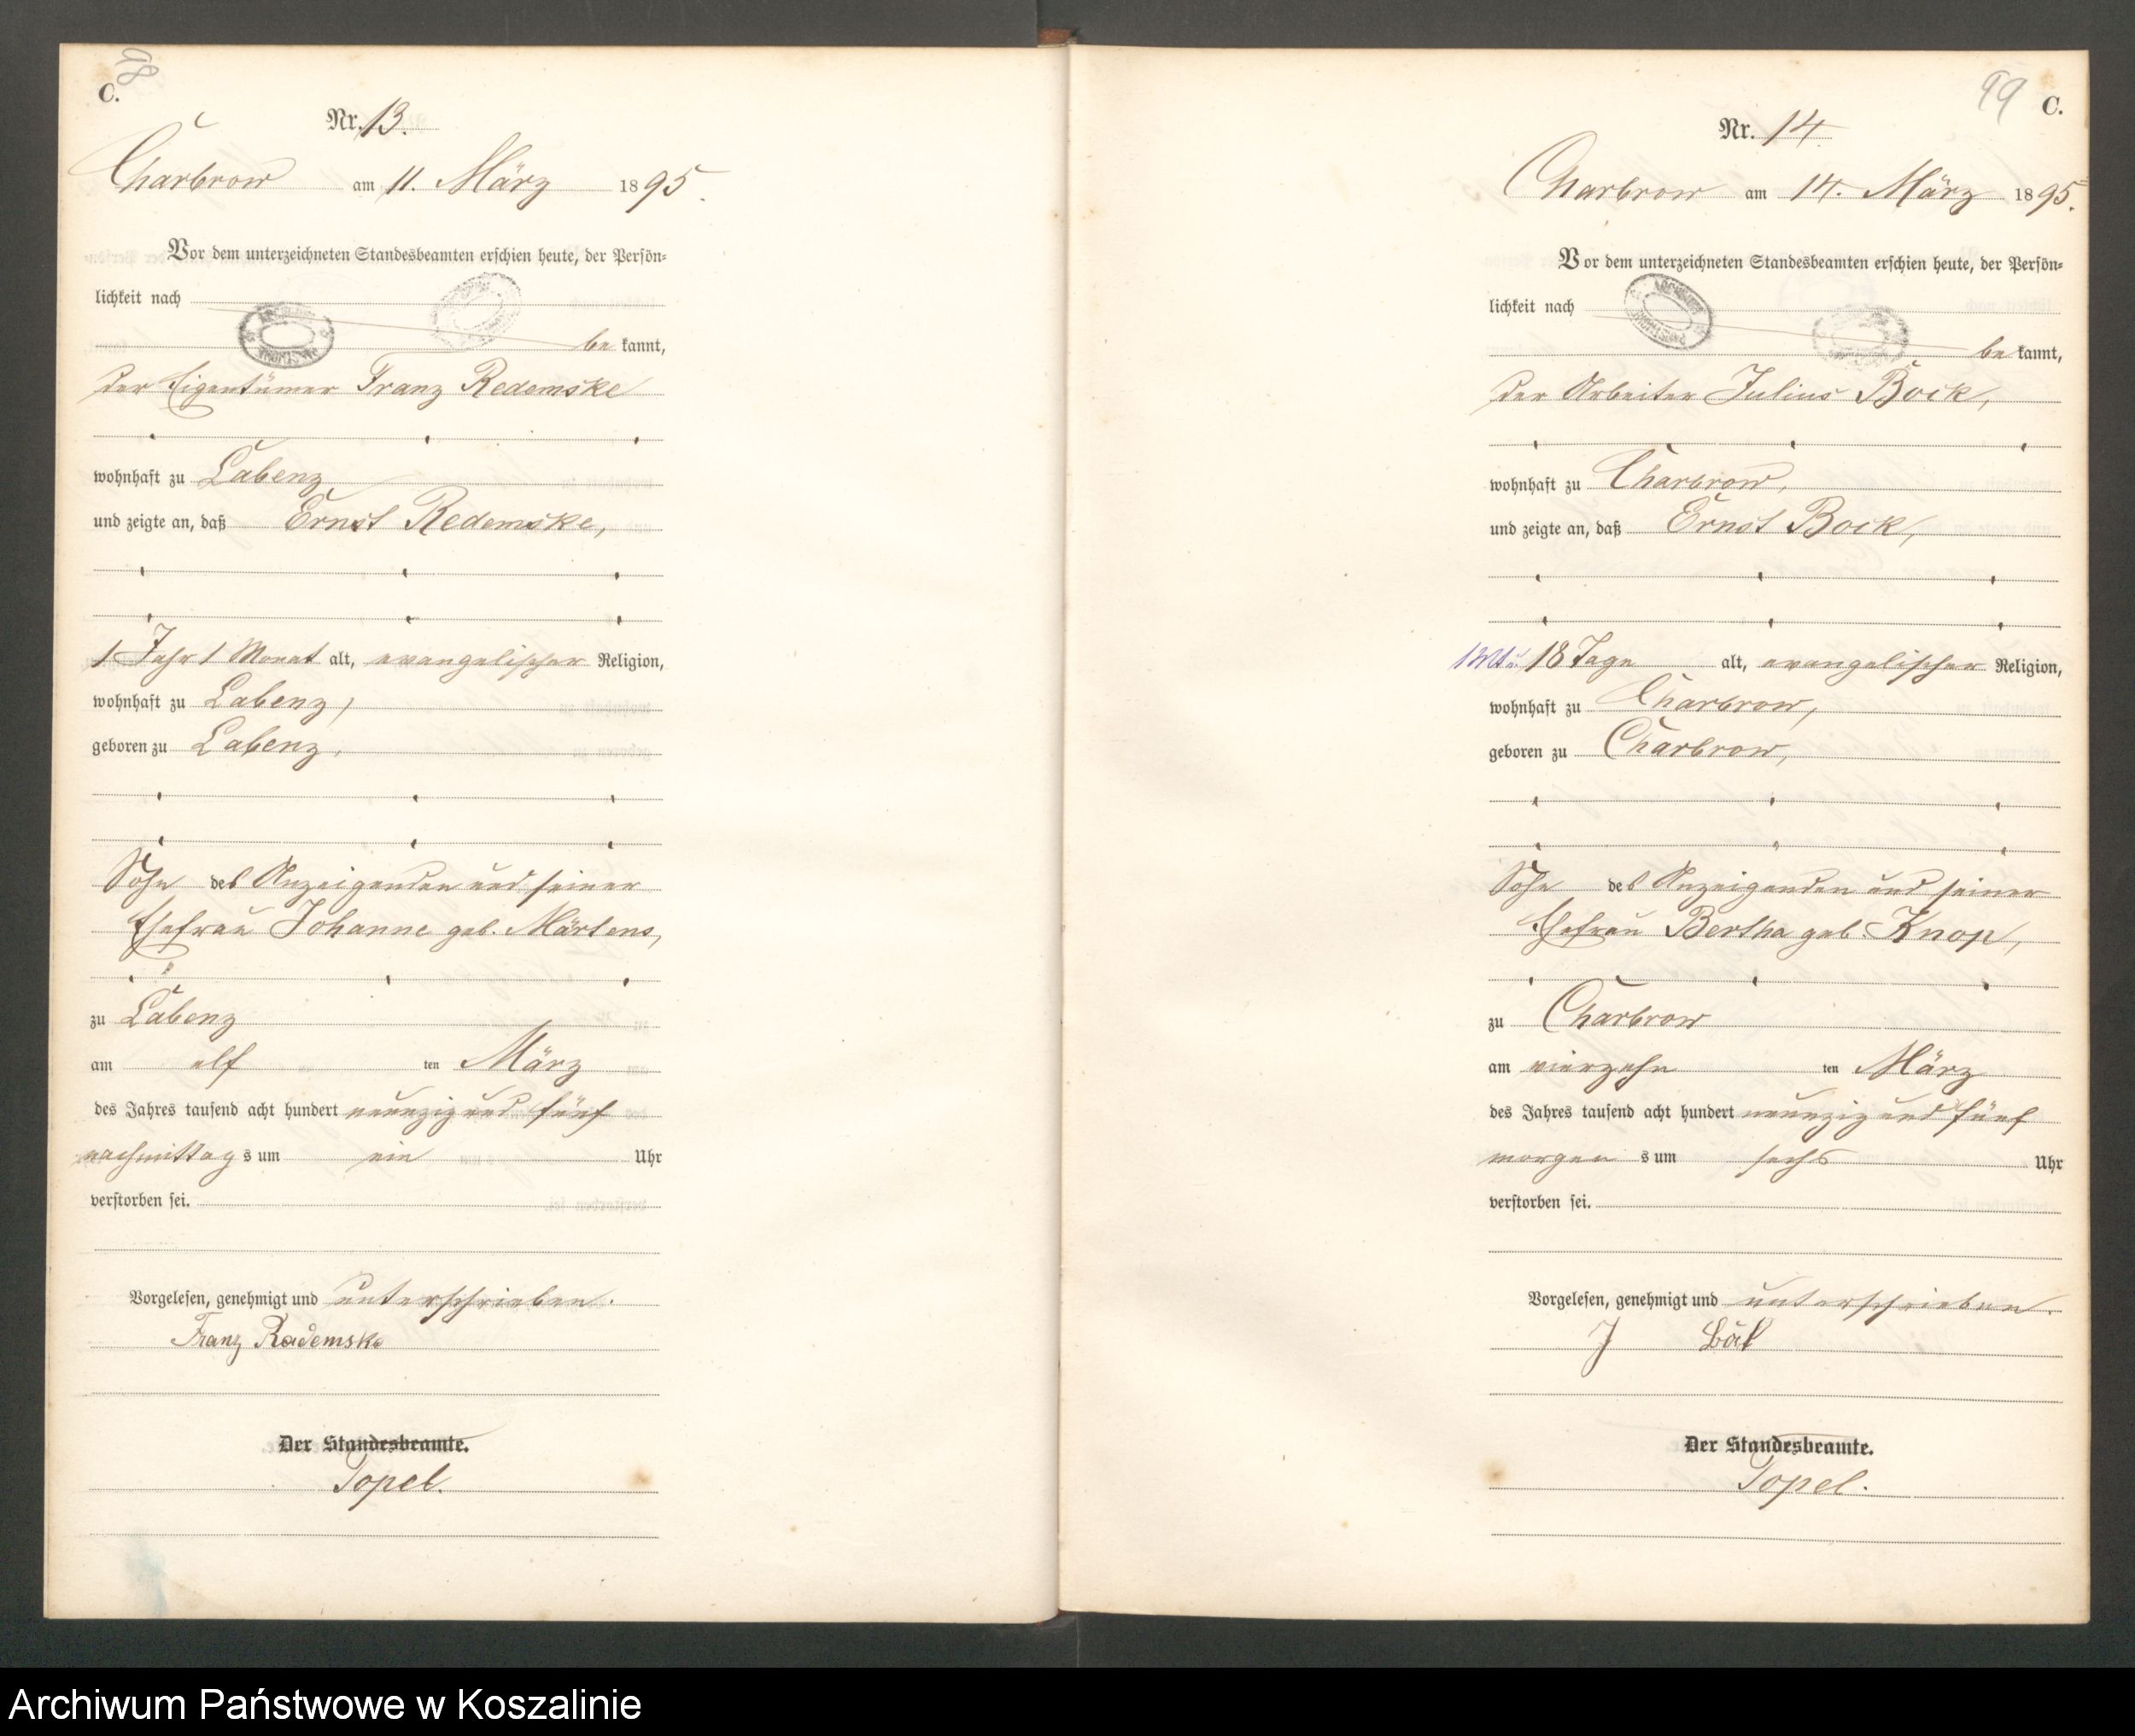 98
C.
Nr. 13.
Charbrow am 11. März 1895.
Vor dem unterzeichneten Standesbeamten erschien heute, der Persön-
lichkeit nach
be kannt,
der Eigentümer Franz Redemske
wohnhaft zu Labenz
und zeigte an, daß Ernst Redemske,
1 Jahr 1 Monat alt, evangelischer Religion,
wohnhaft zu Labenz,
geboren zu Labenz,
Sohn des Anzeigenden und seiner
Ehefrau Johanne geb. Märtens,
zu Labenz
am elf ten März
des Jahres tausend acht hundert neunzig und fünf
nachmittags um ein Uhr
verstorben sei.
Vorgelesen, genehmigt und unterschrieben.
Franz Rademske
Der Standesbeamte.
Topel.
99 C.
Nr. 14
Charbrow am 14. März 1895.
Vor dem unterzeichneten Standesbeamten erschien heute, der Persön-
lichkeit nach
be kannt,
der Arbeiter Julius Bock,
wohnhaft zu Charbrow,
und zeigte an, daß Ernst Bock,
18 Tage alt, evangelischer Religion,
wohnhaft zu Charbrow,
geboren zu Charbrow,
Sohn des Anzeigenden und seiner
Ehefrau Bertha geb. Knop,
zu Charbrow
am vierzehn ten März
des Jahres tausend acht hundert neunzig und fünf
morgens um sechs Uhr
verstorben sei.
Vorgelesen, genehmigt und unterschrieben.
J
Der Standesbeamte.
Topel.
Archiwum Państwowe w Koszalinie